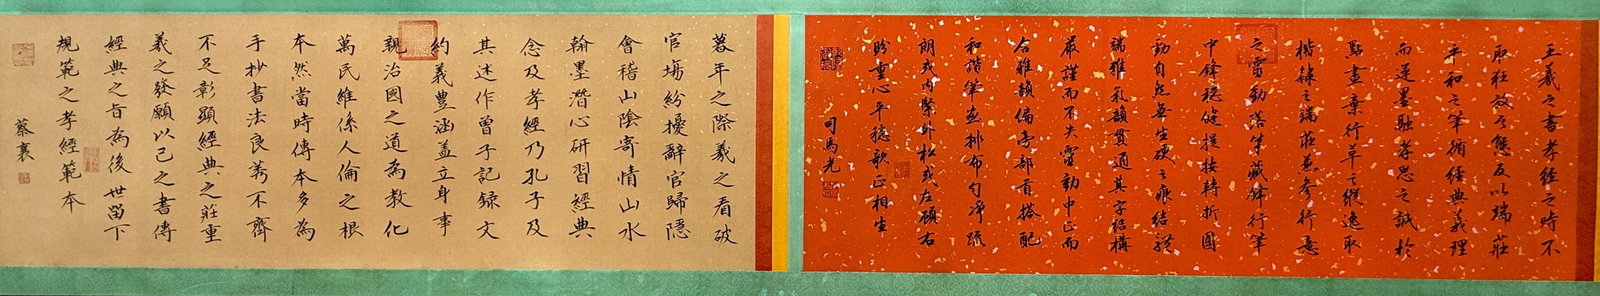 王羲之書孝經之時不
取狂放之態反以端莊
平和之筆循經典義理
而運墨融孝思之誠於
點畫棄行草之縱逸取
楷隸之端莊蕙參行意
之靈動落筆藏鋒行筆
中鋒穩健提按轉折圓
動自然無生硬之痕結體
端雅氣韻貫通其字結構
嚴謹而不失靈動中正而
含雅韻偏旁部首搭配
和諧筆畫排布勻淨疏
朗或內緊外松或左顧右
盼重心平穩欹正相生
司馬光
暮年之際羲之看破
官場紛擾辭官歸隱
會稽山陰寄情山水
翰墨潛心研習經典
念及孝經乃孔子及
其述作曾子記錄文
約義豐涵蓋立身事
親治國之道為教化
萬民維係人倫之根
本然當時傳本多為
手抄書法良莠不齊
不足彰顯經典之莊重
羲之發願以己之書傳
經典之旨為後世留下
規範之孝經範本
蔡襄